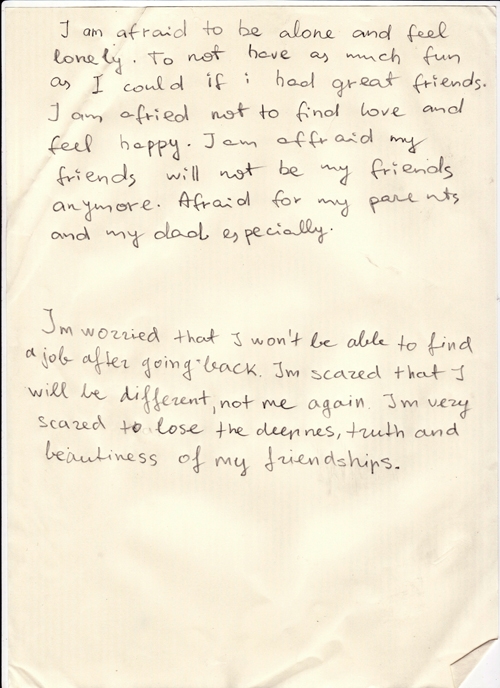 I am afraid to be alone and feel
lonely. To not have as much fun
as I could if i had great friends.
I am afried not to find love and
feel happy. I am affraid my
friends will not be my friends
anymore. Afraid for my parents
and my dad especially.
I'm worried that I won't be able to find
a job after going back. I'm scared that I
will be different, not me again. I'm very
scared to lose the deepnes, truth and
beautiness of my friendships.